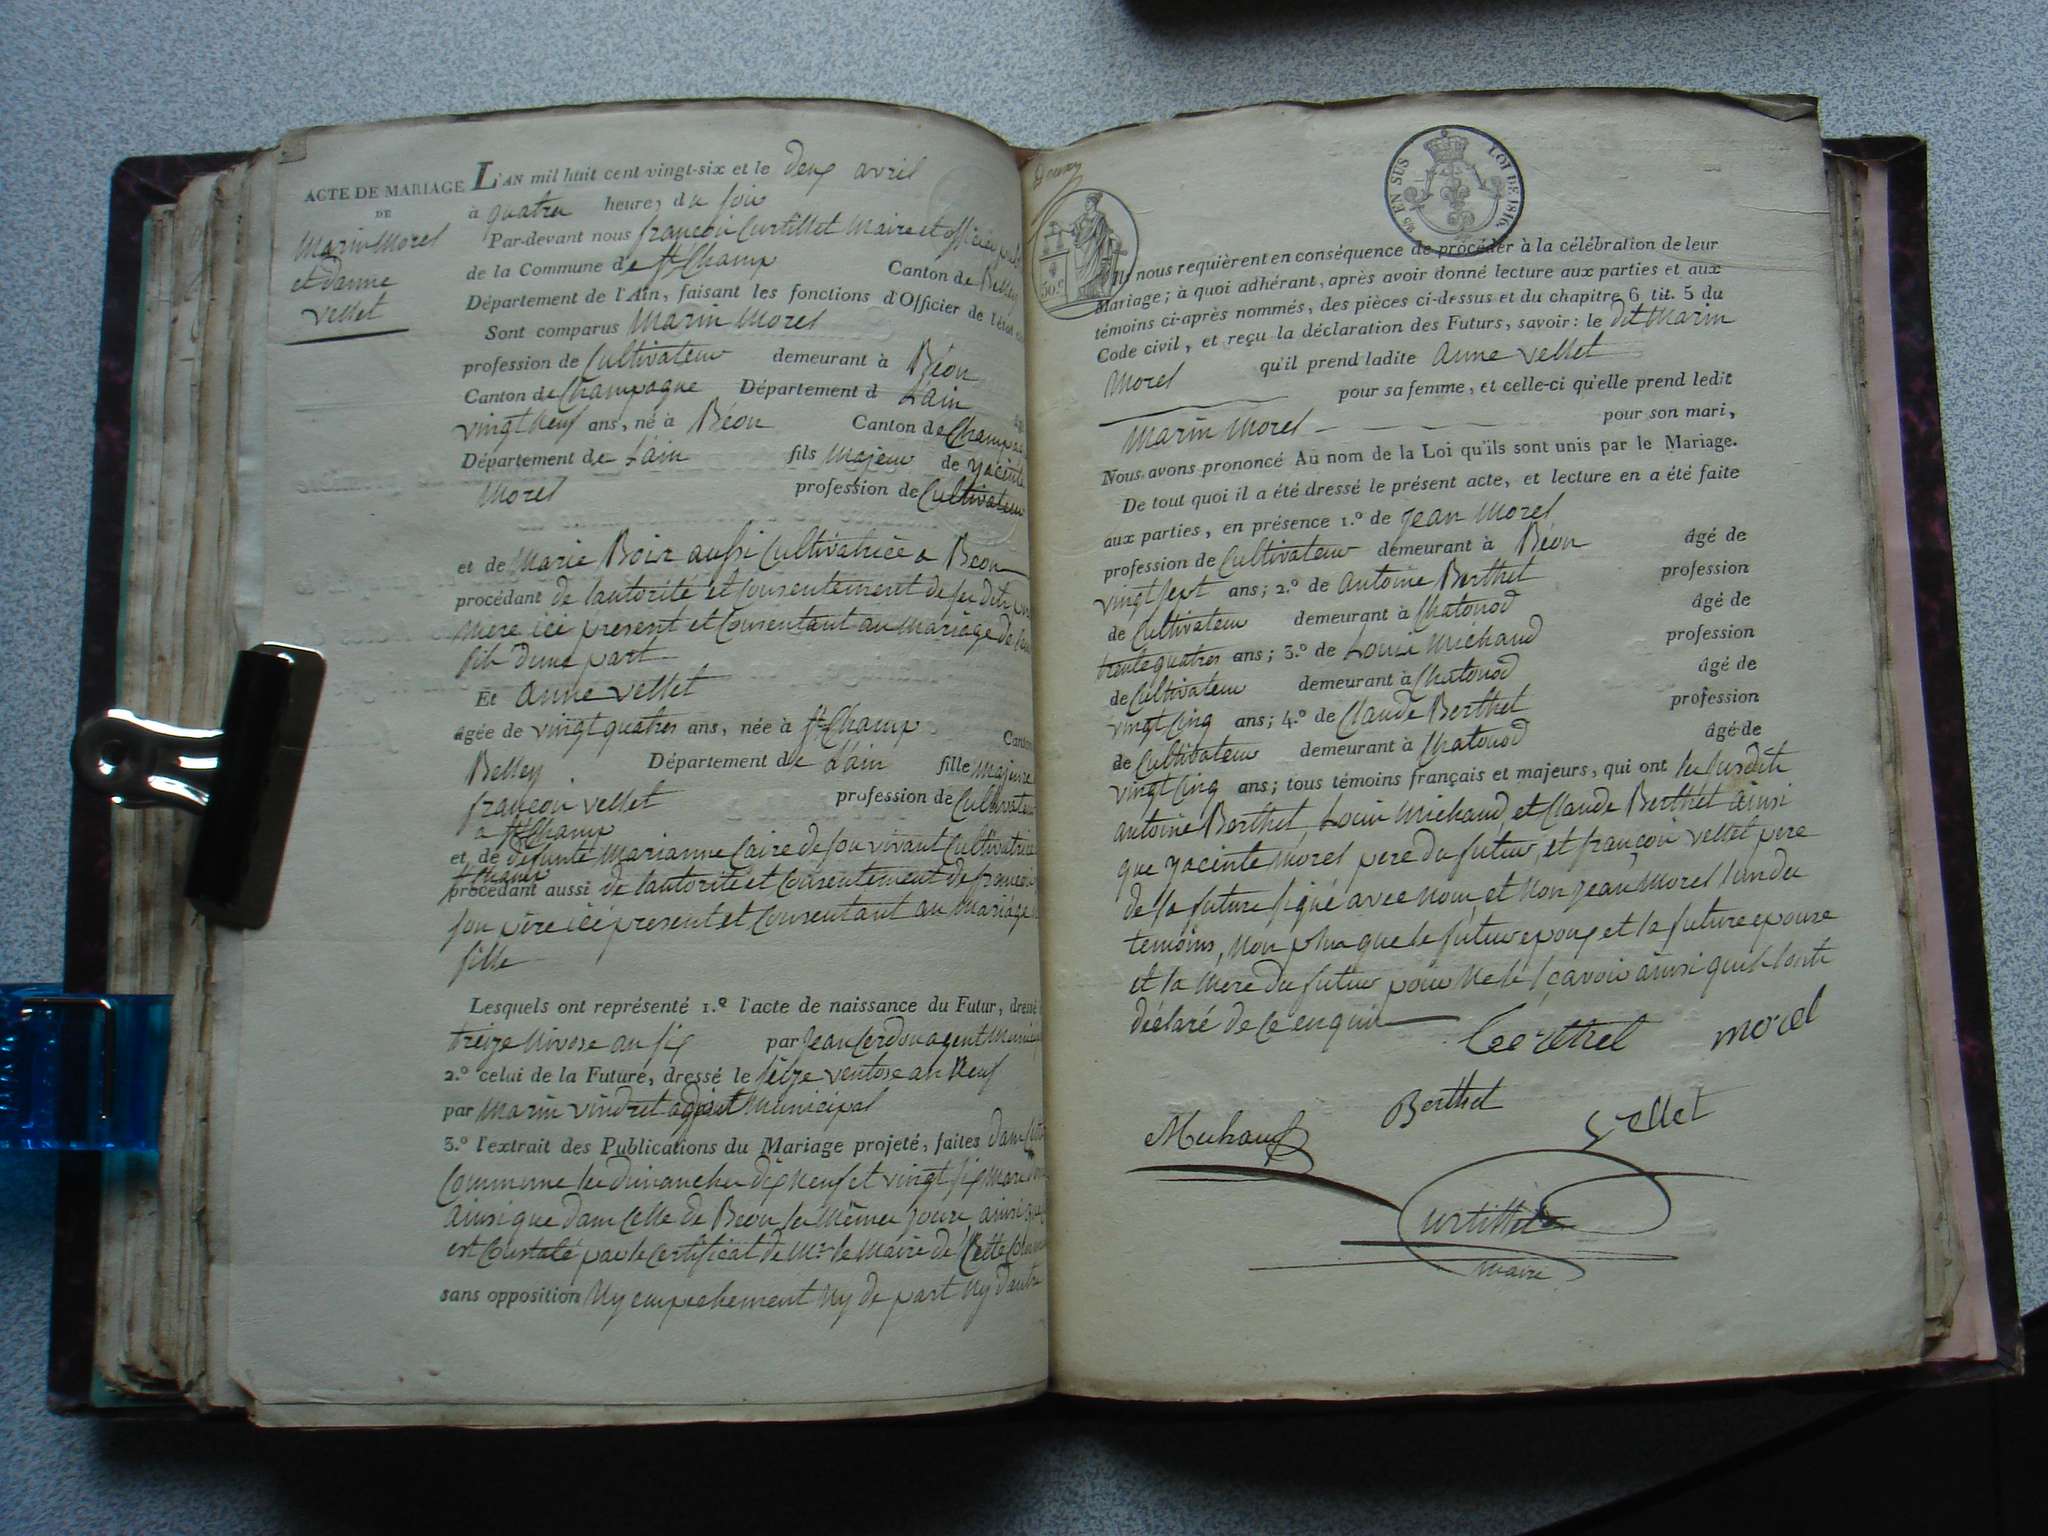 ACTE DE MARIAGE
DE
Marin Morel
et d'anne
vellet
L'AN mil huit cent vingt-six et le deux avril
à quatre heures du soir
Par-devant nous françois Curtillet Maire et officier
de la Commune de St Champ Canton de Belley
Département de l'Ain, faisant les fonctions d'Officier de l'état
Sont comparus Marin Morel
profession de Cultivateur demeurant à Béon
Canton de Champagne Département d L'ain
vingt neuf ans, né à Béon Canton de Champagne
Département de L'ain fils majeur de yacinte
Morel profession de Cultivateur
et de Marie Boix aussi Cultivatrice a Beon
procédant de l'autorité et Consentement de ses dits
mere ici present et Consentant au mariage de
fils d'une part
Et Anne vellet
âgée de vingt quatres ans, née à St Champ Canton
Belley Département de L'ain fille majeure
françois vellet profession de Cultivateur
a St Champ
et de defunte Marianne Caire de son vivant Cultivatrice
St Champ
procédant aussi de l'autorité et Consentement de françois
son père ici present et Consentant au Mariage
fille
Lesquels ont représenté 1.º l'acte de naissance du Futur, dressé
treize Nivose an six par Jean Cerdon agent Municipal
2.º celui de la Future, dressé le seize ventose an Neuf
par Marin vindret adjoint Municipal
3.º l'extrait des Publications du Mariage projeté, faites dans
Commune les dimanches dix Neuf et vingt six Mars
ainsi que dans Celle de Béon les Mêmes jours, ainsi que
est Constaté par le Certificat de Mr le Maire de Cette
sans opposition Ny empechement Ny de part Ny d'autre
EN SUS LOI DE 1816.
50.c
Ils nous requièrent en conséquence de procéder à la célébration de leur
Mariage; à quoi adhérant, après avoir donné lecture aux parties et aux
témoins ci-après nommés, des pièces ci-dessus et du chapitre 6 tit. 5 du
Code civil, et reçu la déclaration des Futurs, savoir: le dit Marin
Morel qu'il prend ladite Anne vellet
pour sa femme, et celle-ci qu'elle prend ledit
Marin Morel pour son mari,
Nous avons prononcé Au nom de la Loi qu'ils sont unis par le Mariage.
De tout quoi il a été dressé le présent acte, et lecture en a été faite
aux parties, en présence 1.º de Jean Morel
profession de Cultivateur demeurant à Béon âgé de
vingt sept ans; 2.º de Antoine Berthet profession
de Cultivateur demeurant à Chatonod âgé de
trente quatres ans; 3.º de Louis Michaud profession
de Cultivateur demeurant à Chatonod âgé de
vingt Cinq ans; 4.º de Claude Berthet profession
de Cultivateur demeurant à Chatonod âgé de
vingt Cinq ans; tous témoins français et majeurs, qui ont les susdits
antoine Berthet, Louis Michaud, et Claude Berthet ainsi
que yacinte Morel pere du futur, et françois vellet pere
de la future signé avec nous, et Non Jean Morel l'un des
temoins, Non plus que le futur epoux et la future epouse
et la Mere du futur pour Ne le sçavoir ainsi qu'ils l'ont
déclaré de ce enquis
berthet morel
Berthet
Michaud vellet
Curtillet
maire